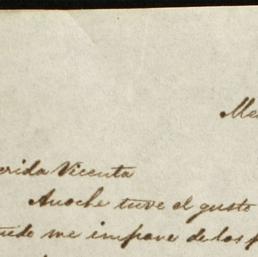 Me
erida Vicenta
Anoche tuve el gusto
uedo me impone de los p